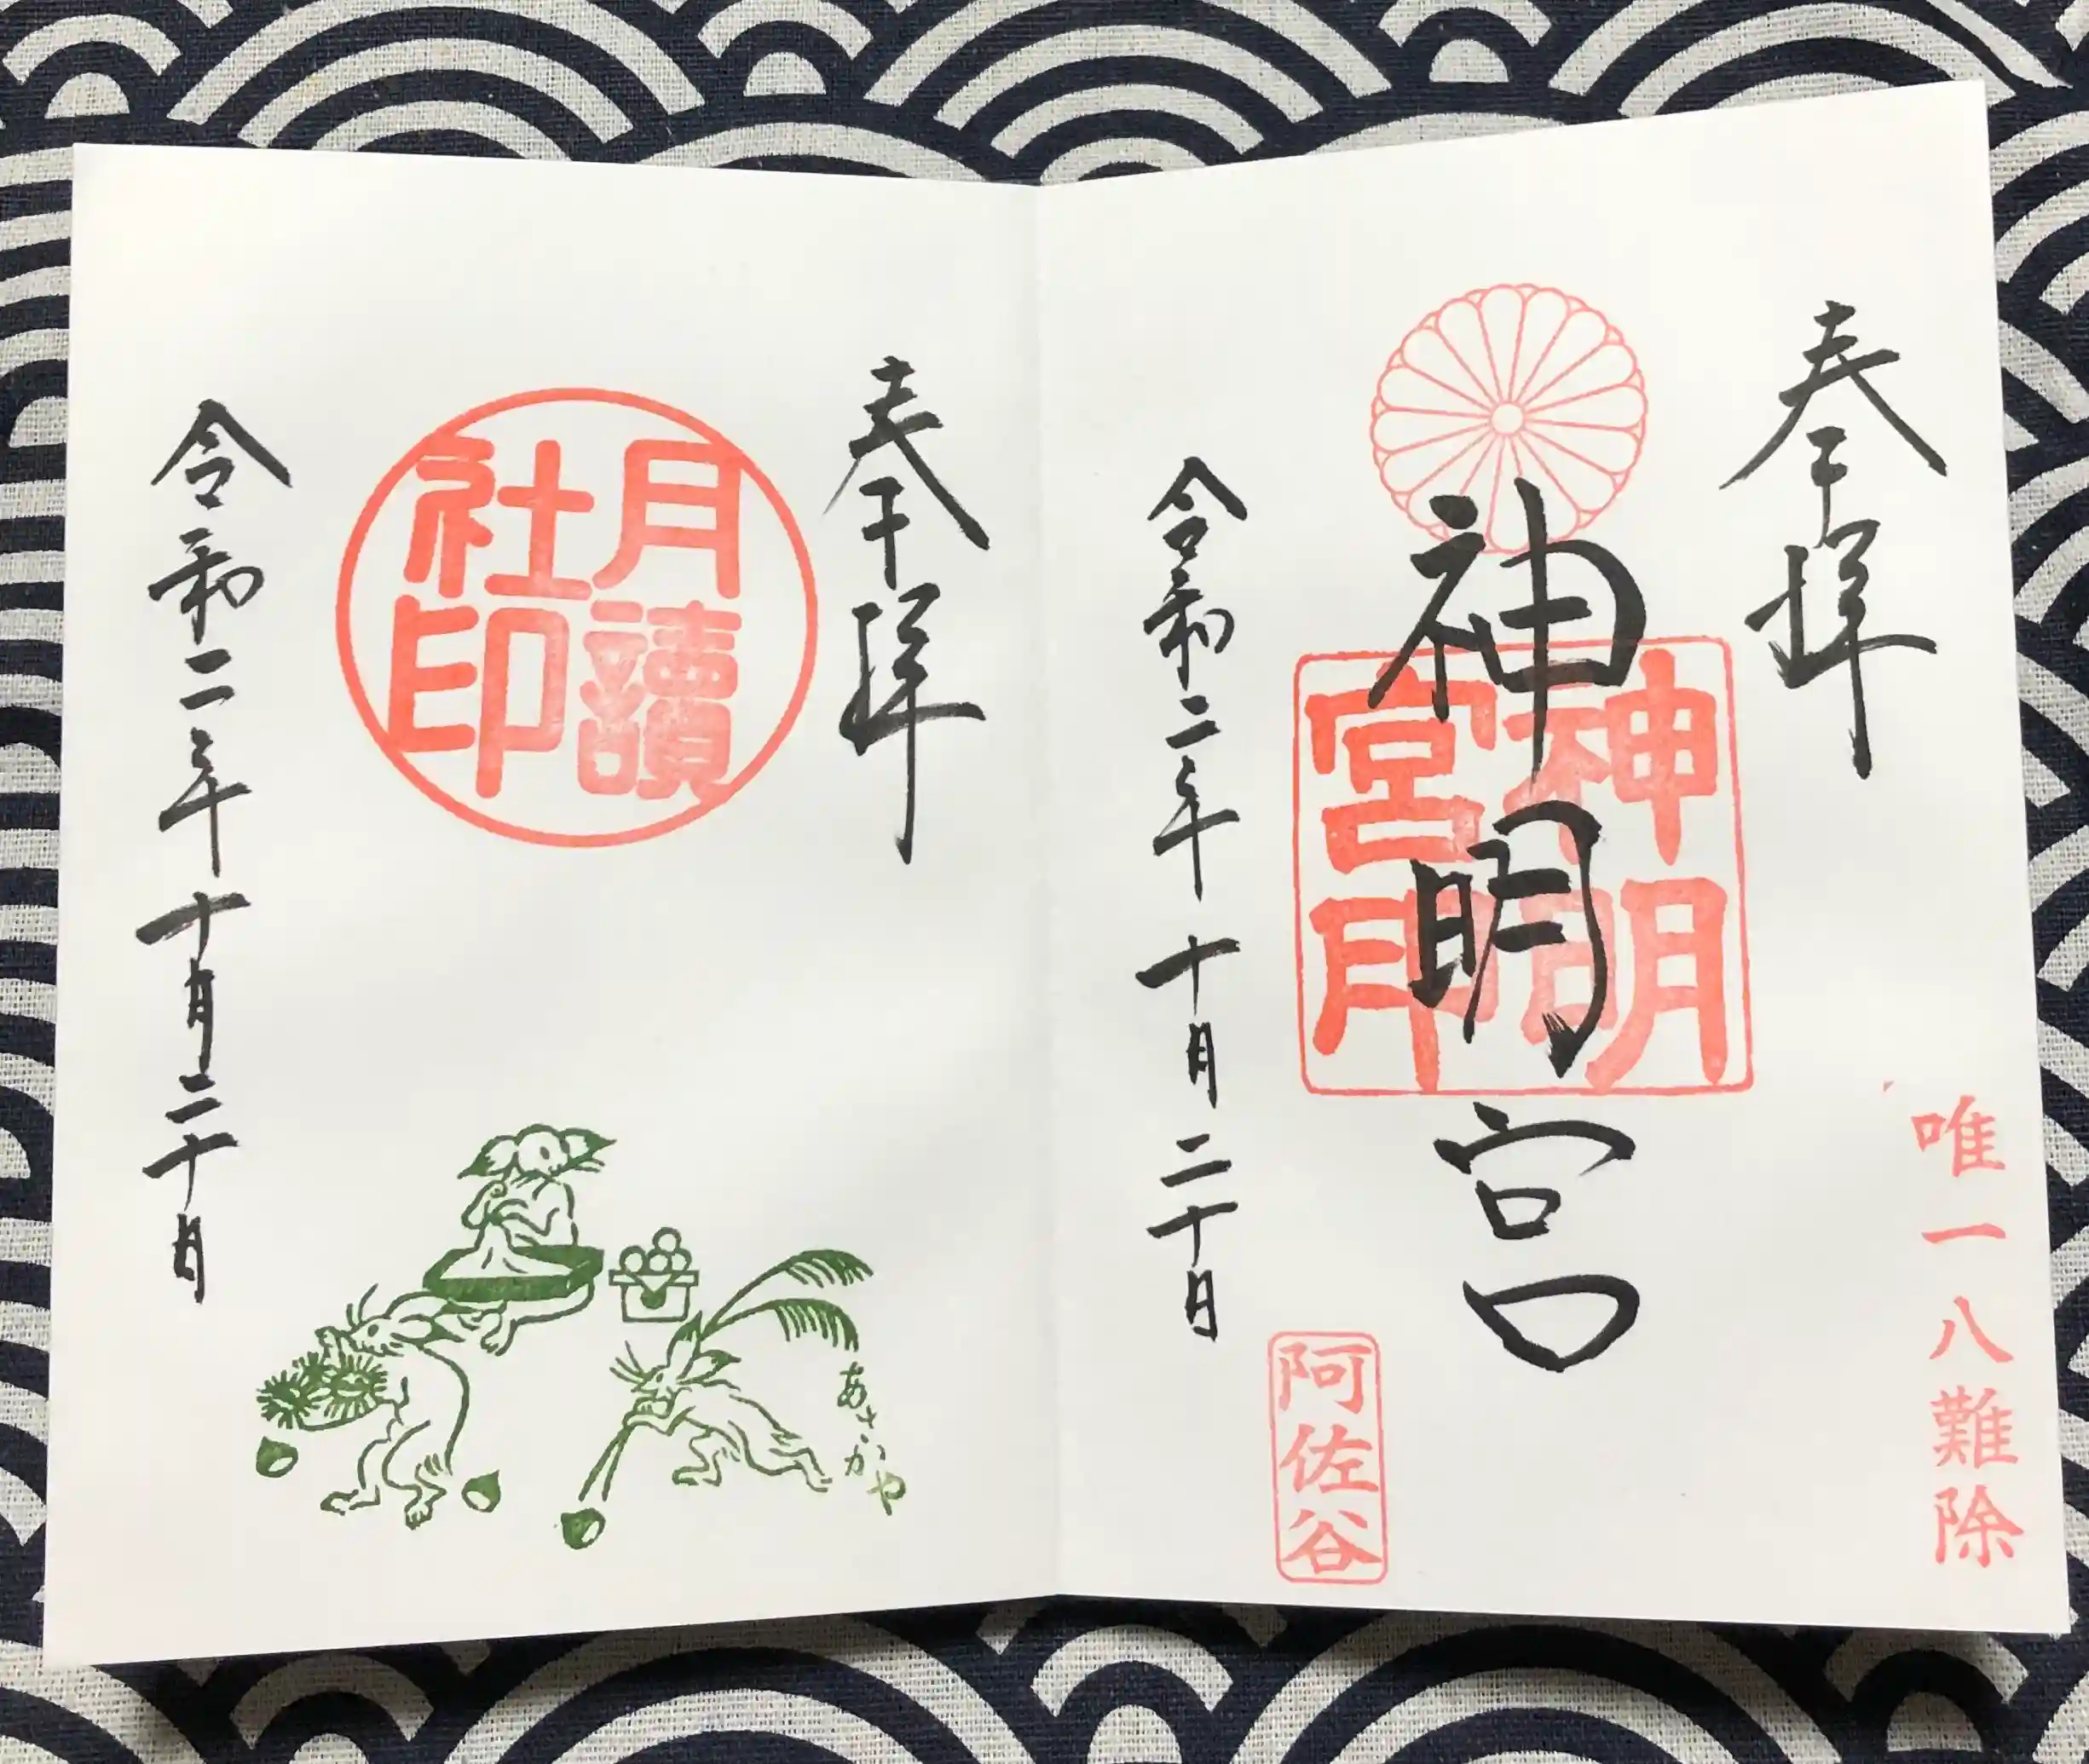 奉拝
唯一八難除
神明宮
神明宮印
令和二年十月二十日
阿佐谷
奉拝
月讀社印
令和二年十月二十日
あさがや